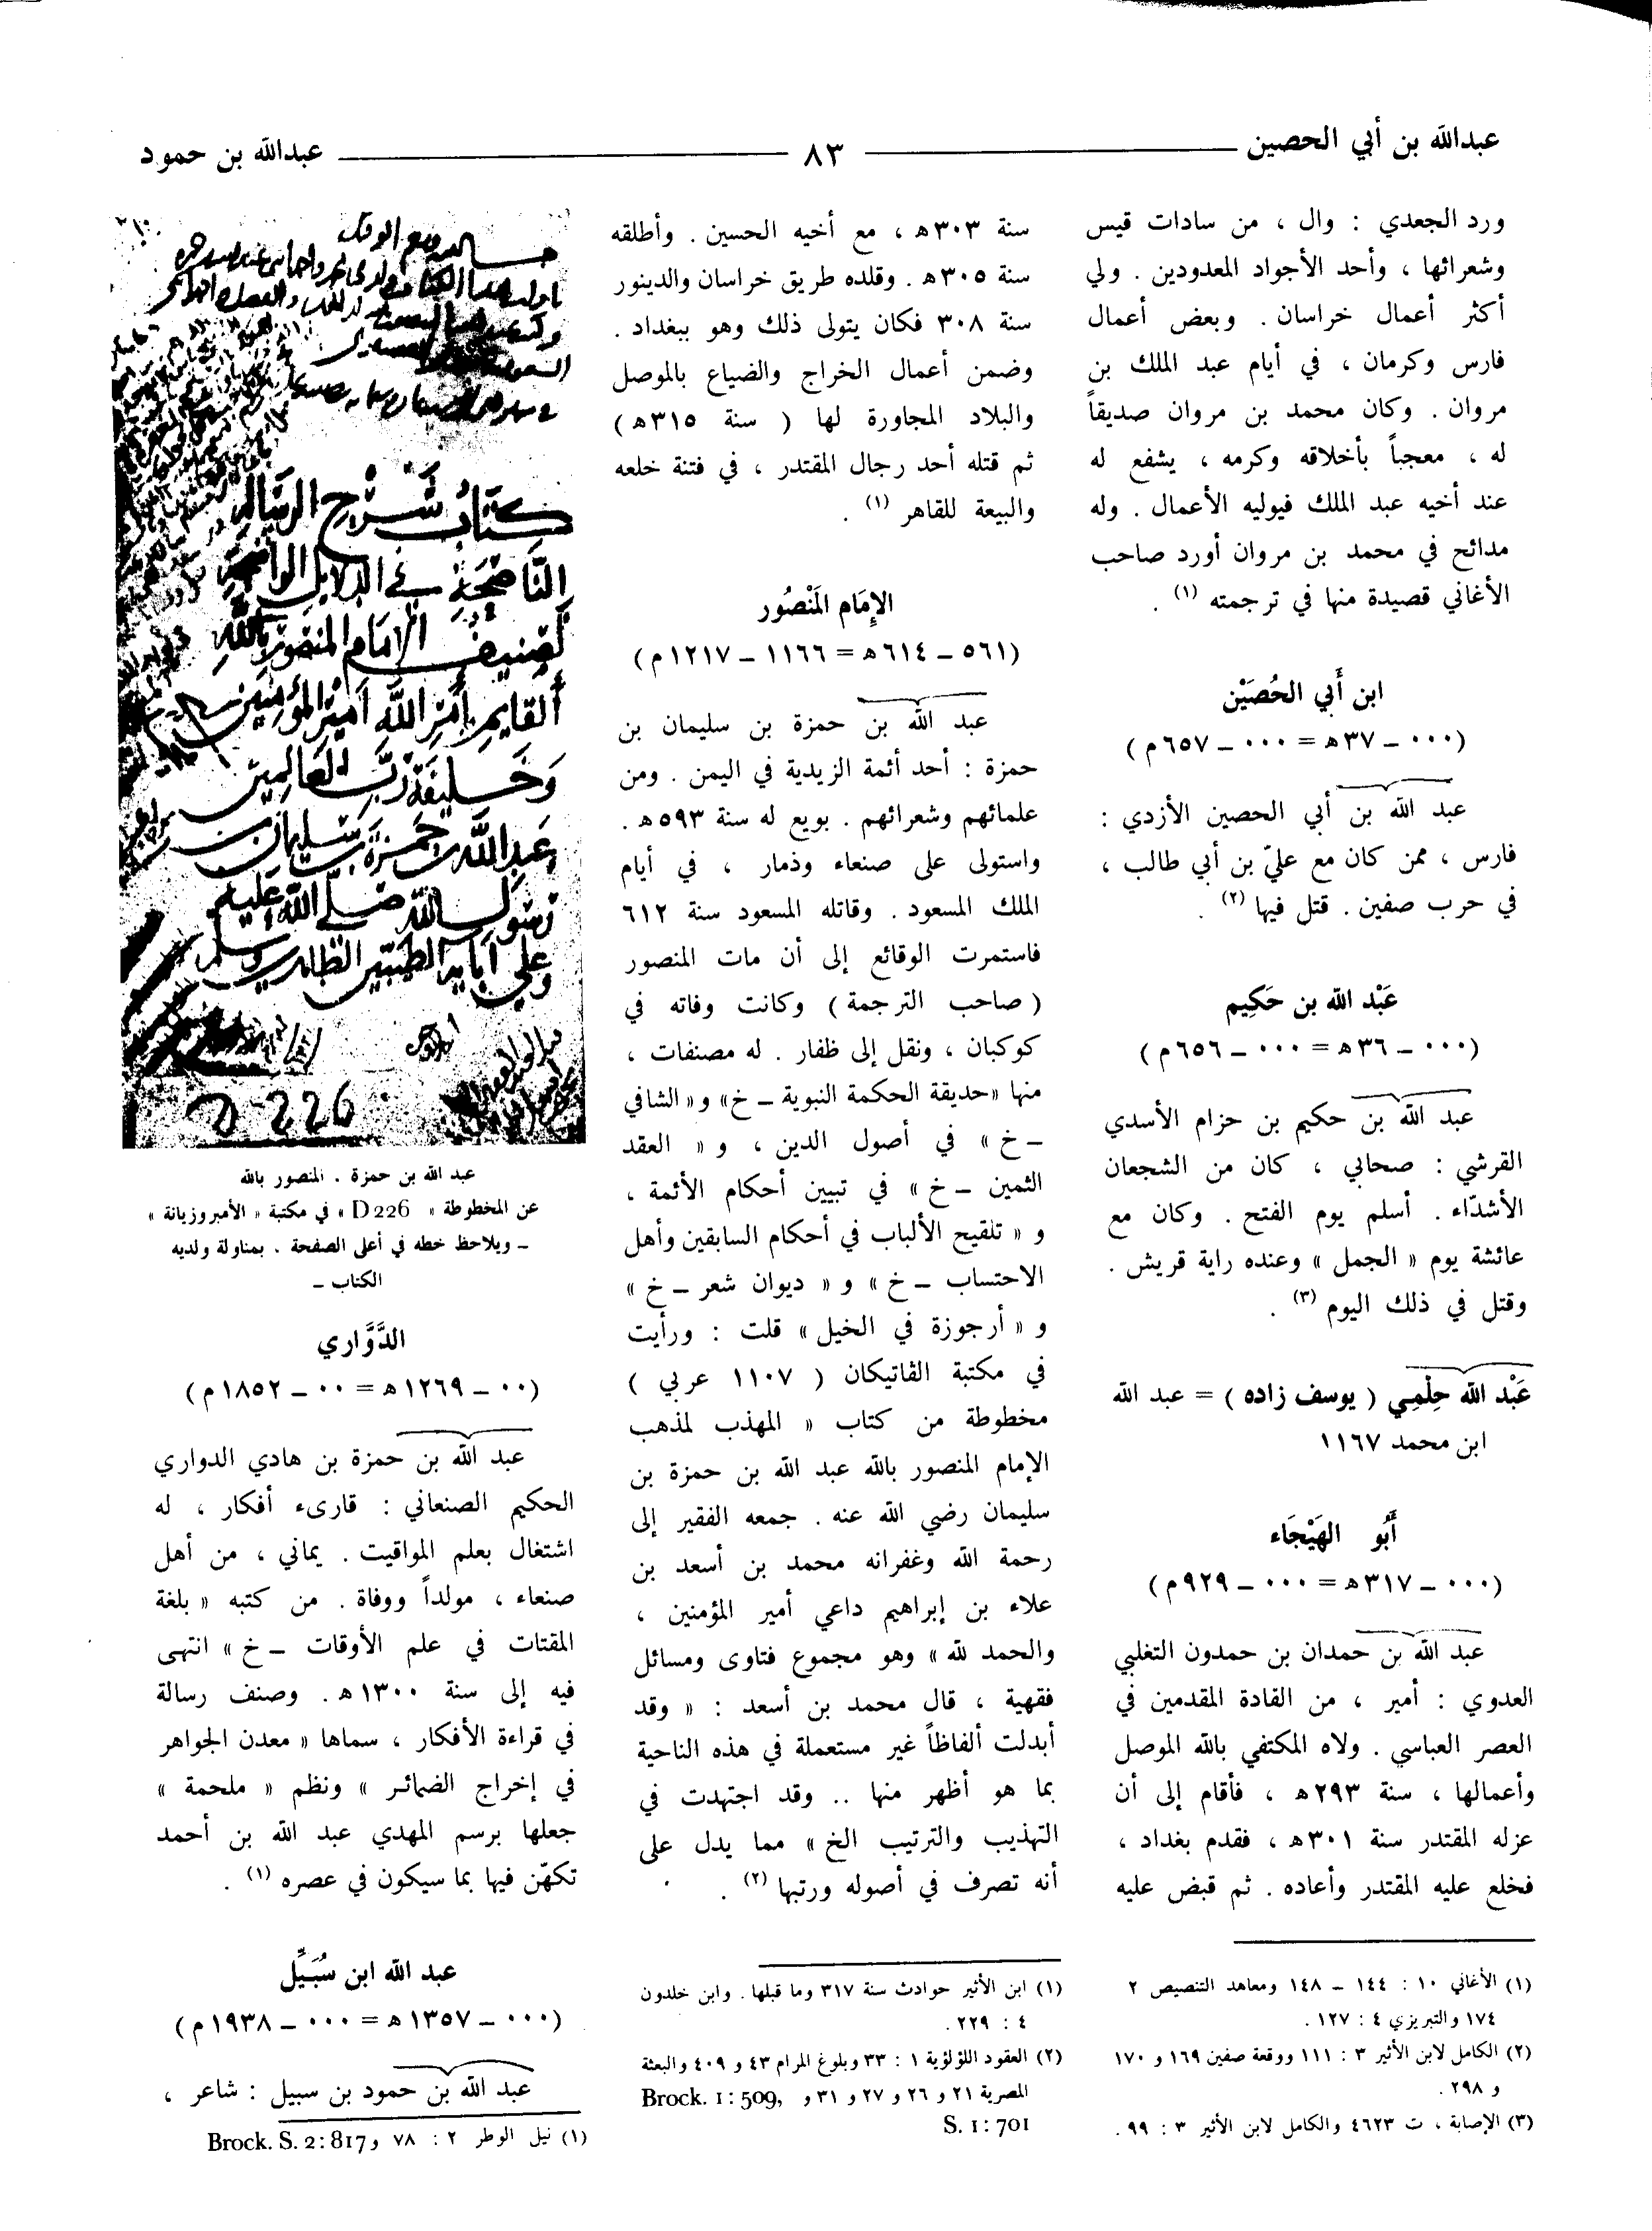 عبدالله بن أبي الحصين
٨٣
عبدالله بن حمود
ورد الجعدي : وال ، من سادات قيس
وشعرائها ، وأحد الأجواد المعدودين . ولي
أكثر أعمال خراسان . وبعض أعمال
فارس وكرمان ، في أيام عبد الملك بن
مروان . وكان محمد بن مروان صديقاً
له ، معجباً بأخلاقه وكرمه ، يشفع له
عند أخيه عبد الملك فيوليه الأعمال . وله
مدائح في محمد بن مروان أورد صاحب
الأغاني قصيدة منها في ترجمته (١) .
ابن أَبي الحُصَيْن
(٠٠٠ ــ ٣٧ ھ = ٠٠٠ ــ ٦٥٧ م)
عبد الله بن أبي الحصين الأزدي :
فارس ، ممن كان مع عليّ بن أبي طالب ،
في حرب صفين . قتل فيها (٢) .
عَبْد الله بن حَكِيم
(٠٠٠ ــ ٣٦ ھ = ٠٠٠ ــ ٦٥٦ م)
عبد الله بن حكيم بن حزام الأسدي
القرشي : صحابي ، كان من الشجعان
الأشدّاء . أسلم يوم الفتح . وكان مع
عائشة يوم « الجمل » وعنده راية قريش .
وقتل في ذلك اليوم (٣) .
عَبْد الله حِلْمِي ( يوسف زاده ) = عبد الله
ابن محمد ١١٦٧
أَبُو الهَيْجَاء
(٠٠٠ ــ ٣١٧ ھ = ٠٠٠ ــ ٩٢٩ م)
عبد الله بن حمدان بن حمدون التغلبي
العدوي : أمير ، من القادة المقدمين في
العصر العباسي . ولاه المكتفي بالله الموصل
وأعمالها ، سنة ٢٩٣ ھ ، فأقام إلى أن
عزله المقتدر سنة ٣٠١ ھ ، فقدم بغداد ،
فخلع عليه المقتدر وأعاده . ثم قبض عليه
(١) الأغاني ١٠ : ١٤٤ ــ ١٤٨ ومعاهد التنصيص ٢
١٧٤ والتبريزي ٤ : ١٢٧ .
(٢) الكامل لابن الأثير ٣ : ١١١ ووقعة صفين ١٦٩ و ١٧٠
و ٢٩٨ .
(٣) الإصابة ، ت ٤٦٢٣ والكامل لابن الأثير ٣ : ٩٩ .
سنة ٣٠٣ ھ ، مع أخيه الحسين . وأطلقه
سنة ٣٠٥ ھ . وقلده طريق خراسان والدينور
سنة ٣٠٨ فكان يتولى ذلك وهو ببغداد .
وضمن أعمال الخراج والضياع بالموصل
والبلاد المجاورة لها ( سنة ٣١٥ ھ )
ثم قتله أحد رجال المقتدر ، في فتنة خلعه
والبيعة للقاهر (١) .
الإِمَام المَنْصُور
(٥٦١ ــ ٦١٤ ھ = ١١٦٦ ــ ١٢١٧ م)
عبد الله بن حمزة بن سليمان بن
حمزة : أحد أئمة الزيدية في اليمن . ومن
علمائهم وشعرائهم . بويع له سنة ٥٩٣ ھ .
واستولى على صنعاء وذمار ، في أيام
الملك المسعود . وقاتله المسعود سنة ٦١٢
فاستمرت الوقائع إلى أن مات المنصور
( صاحب الترجمة ) وكانت وفاته في
كوكبان ، ونقل إلى ظفار . له مصنفات ،
منها «حديقة الحكمة النبوية ــ خ» و« الشافي
ــ خ » في أصول الدين ، و « العقد
الثمين ــ خ » في تبيين أحكام الأئمة ،
و « تلقيح الألباب في أحكام السابقين وأهل
الاحتساب ــ خ » و « ديوان شعر ــ خ »
و « أرجوزة في الخيل » قلت : ورأيت
في مكتبة الڤاتيكان ( ١١٠٧ عربي )
مخطوطة من كتاب « المهذب لمذهب
الإمام المنصور بالله عبد الله بن حمزة بن
سليمان رضي الله عنه . جمعه الفقير إلى
رحمة الله وغفرانه محمد بن أسعد بن
علاء بن إبراهيم داعي أمير المؤمنين ،
والحمد لله » وهو مجموع فتاوى ومسائل
فقهية ، قال محمد بن أسعد : « وقد
أبدلت ألفاظاً غير مستعملة في هذه الناحية
بما هو أظهر منها .. وقد اجتهدت في
التهذيب والترتيب الخ » مما يدل على
أنه تصرف في أصوله ورتبها (٢) .
(١) ابن الأثير حوادث سنة ٣١٧ وما قبلها . وابن خلدون
٤ : ٢٢٩ .
(٢) العقود اللؤلؤية ١ : ٣٣ وبلوغ المرام ٤٣ و ٤٠٩ والبعثة
المصرية ٢١ و ٢٦ و ٢٧ و ٣١ و Brock. 1: 509,
S. 1: 701
كتاب شرح الرسالة
الناصحة في الدلايل الواضحة
تصنيف الإمام المنصور بالله
القايم بأمر الله أمير المؤمنين
وخليفة رب العالمين
عبد الله بن حمزة بن سليمان بن
رسول الله صلى الله عليه
وعلى آبايه الطيبين الطاهرين وسلم
D 226
عبد الله بن حمزة . المنصور بالله
عن المخطوطة « D 226 » في مكتبة « الأمبروزيانة »
ــ ويلاحظ خطه في أعلى الصفحة . بمناولة ولديه
الكتاب ــ
الدَّوَّاري
(٠٠ ــ ١٢٦٩ ھ = ٠٠ ــ ١٨٥٢ م)
عبد الله بن حمزة بن هادي الدواري
الحكيم الصنعاني : قارىء أفكار ، له
اشتغال بعلم المواقيت . يماني ، من أهل
صنعاء ، مولداً ووفاة . من كتبه « بلغة
المقتات في علم الأوقات ــ خ » انتهى
فيه إلى سنة ١٣٠٠ ھ . وصنف رسالة
في قراءة الأفكار ، سماها « معدن الجواهر
في إخراج الضمائر » ونظم « ملحمة »
جعلها برسم المهدي عبد الله بن أحمد
تكهّن فيها بما سيكون في عصره (١) .
عبد الله ابن سُبَيِّل
(٠٠٠ ــ ١٣٥٧ ھ = ٠٠٠ ــ ١٩٣٨ م)
عبد الله بن حمود بن سبيل : شاعر ،
(١) نيل الوطر ٢ : ٧٨ و Brock. S. 2: 817